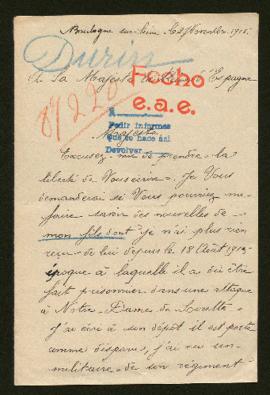 Boulogne sur Seine Novembre 1915
Durin
A Sa Majesté d'Espagne
Fecho
e.a.e.
87.220
Pedir informes
que se hace así
Devolver
Majesté
Excusez-moi de prendre la
liberté de Vous écrire. Je Vous
demanderai si Vous pourriez me
faire savoir des nouvelles de
mon fils dont je n'ai plus rien
reçu de lui depuis le 18 Août 1915
époque à laquelle il a dû être
fait prisonnier dans une attaque
à Notre-Dame de Lorette
J'ai écrit à son dépôt il est porté
comme disparu, j'ai vu un
militaire de son régiment